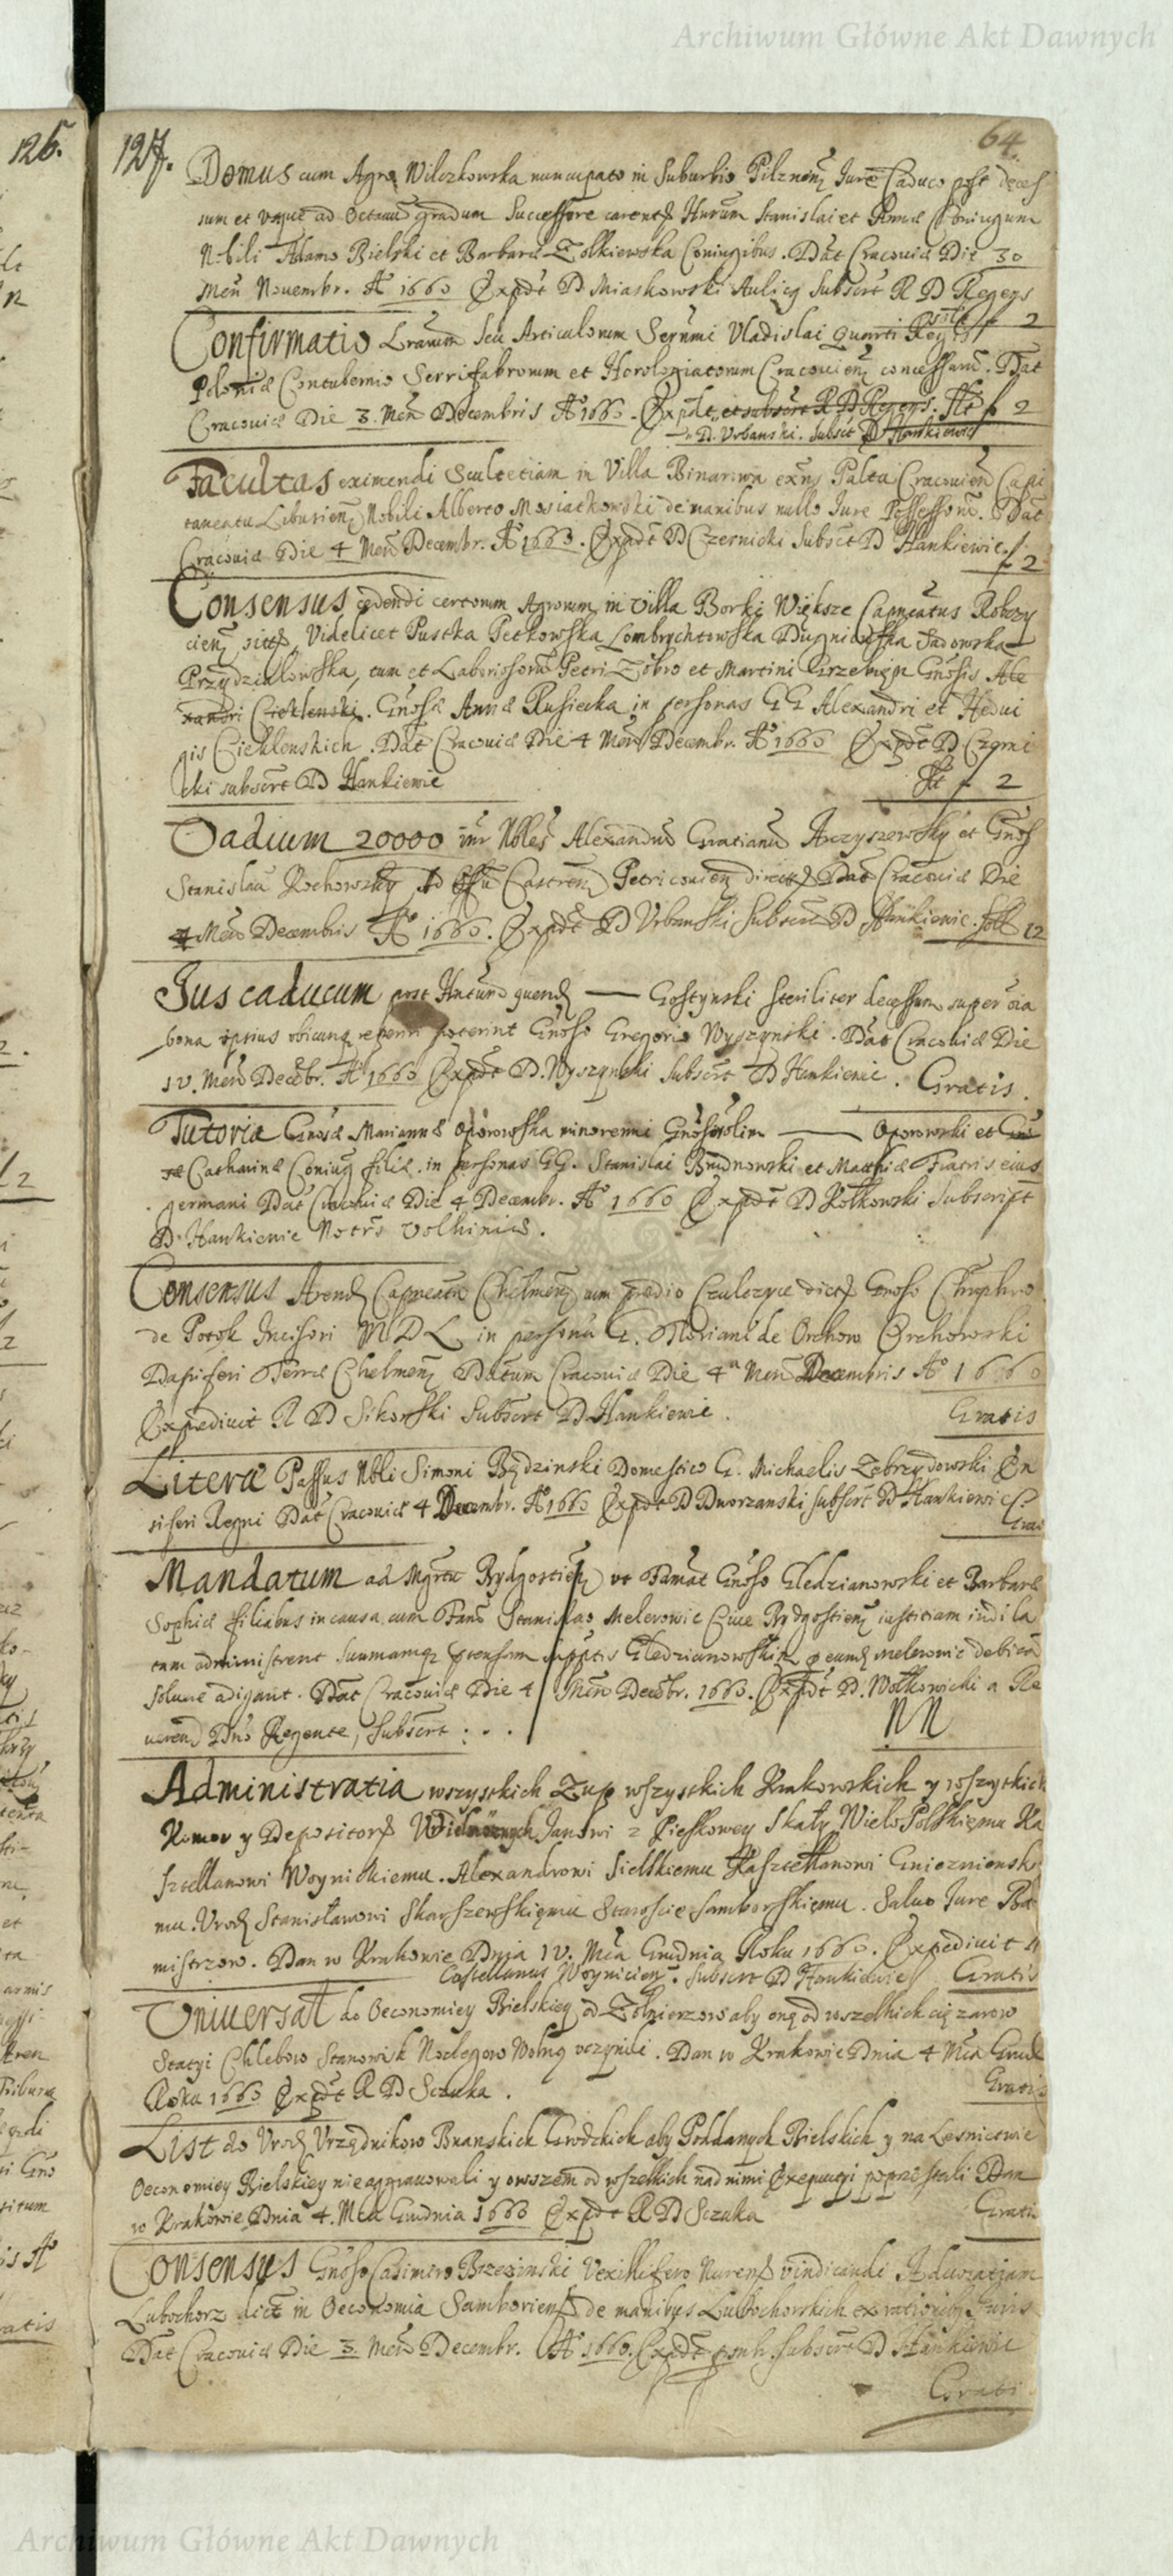 Archiwum Główne Akt Dawnych
126.
127.
64.
Domus cum Agro Wilczkowska nuncupato in Suburbio Pilznen Jure Caduco post deces
sum et vsque ad Octauũ gradum Successore carente Hurum Stanislai et Annæ Coniugum
Nobili Adamo Bielski et Barbaræ Zolkiewska Coniugibus. Dat Cracouiæ Die 30
Men Nouembr. Aº 1660 Expdt D Miaskowski Aulicg Subscrt R D Regens
f 2
Confirmatio Lrarum seu Articulorum Sermi Vladislai Quarti Regis
Poloniæ Contubernio Serrifabrorum et Horologiatorum Cracouien concessarũ. Dat
Cracouiæ Die 3. Men Decembris Aº 1660. Expdt et subscrt R D Regens. f 2
D. Vrbanski. Subsct D Hankiewic
Facultas eximendi Scultetiam in Villa Binarowa exns Paltu Cracouien Capi
taneatu Libusien Nobili Alberto Mosiatkowski de manibus nullo Jure Possessorũ. Dat
Cracouiæ Die 4 Men Decembr. Aº 1660. Expdt D Czernicki Subsct D Hankiewic.
f 2
Consensus cedendi certorum Agrorum in Villa Borki Większe Capneatus Robczy
cien sitts, Videlicet Pustka Petkowska Lombrychtowska Dugniowska Sadowska
Przydziałowska, tum et Laboriosorũ Petri Zobro et Martini Grzebięn Gnosis Ale
xandri Cieklenski. Gnosæ Annæ Rusiecka in personas GG Alexandri et Hedui
gis Cieklenskich. Dat Cracouiæ Die 4 Men Decembr. Aº 1660 Expdt D Czerni
cki subscrt D Hankiewic
f 2
Vadium 20000 intr Nbles Alexandrũ Gratianũ Arczyszewsky et Gnos
Stanislaũ Kochowsky Ad Offũ Castren Petricouien directs Dat Cracouiæ Die
4 Men Decembris Aº 1660. Expdt D Vrbanski Subscrt D Hankiewic. 12
Jus caducum post Antund quend — Gostynski steriliter decessum super oia
bona ipsius vbicunq reperiri poterint Gnoso Gregorio Wyszynski. Dat Cracouiæ Die
IV. Men Decebr. Aº 1660 Expdt D. Wyszynski Subscrt D Hankiewic. Gratis.
Tutoria Gnosæ Mariannæ Oporowska minorenni Gnosorolim — Oporowski et Gno
sæ Catharinæ Coniug filiæ. in personas GG. Stanislai Brudnowski et Matthiæ Fratris eius
germani Dat Cracouiæ Die 4 Decembr. Aº 1660 Expdt D Kołkowski Subscript
D. Hankiewic Notrs Volhiniæ.
Consensus Arend Capneatu Chelmen cum prædio Czulczyce dicts Gnoso Chryphro
de Potok Incisori M D L in personũ G. Floriani de Orchow Orchowski
Dapiferi Terræ Chelmen Datum Cracouiæ Die 4ª Men Decembris Aº 1660
Expediuit R D Sikorski Subscrt D Hankiewic.
Gratis
Literæ Passus Nbli Simoni Będzinski Domestico G. Michaelis Zebrzydowski En
siferi Regni Dat Cracouiæ 4 Decembr. Aº 1660 Expdt D Dworzanski subscrt D Hankiewic
Gra
Mandatum ad Mgrtũ Bydgostien vt Famat Gnoso Gledzianowski et Barbaræ
Sophiæ filiabus in causa cum Famo Stanislao Melerowic Ciue Bydgostien iustitiam indila
tam administrent summamq prensam supptis Gledzianowskim p eumd Melerowic debitã
soluere adigant. Dat Cracouiæ Die 4 Men Decebr. 1660. Expdt D. Wolkowicki a Re
uerend Dno Regente, Subscrt . . .
NN
Administratia wszystkich Zup wszystkich Krakowskich y wszytkich
Komor y Depositors Janowi z Pieskowey Skały WieloPolskięmu Ka
sztellanowi Woynickiemu. Alexandrowi Sielskiemu Kasztellanowi Gniezniensk
mu. Vrod Stanisławowi Skarszewskięmu Staroscie Samborskięmu. Saluo Jure Ba
mistrzow. Dan w Krakowie Dnia IV. Mca Grudnia Roku 1660. Expediuit
Castellanus Woynicien. Subscrt D Hankiewic Gratis
Vniuersał do Oeconomiey Bielskiey od Zołnierzow aby onę od wszelkich ciężarow
Statyi Chlebow Stanowisk Noclegow Wolną vczynili. Dan w Krakowie Dnia 4 Mca Grud
Roku 1660 Expdt R D Sczuka.
Gratis
List do Vrod Vrzędnikow Branskich Grodzkich aby Poddanych Bielskich y na Lesnictwie
Oeconomiey Bielskiey nie aggrauowali y owszem od wszelkich nad nimi Exequcyi poprzestali Dan
w Krakowie Dnia 4. Mca Grudnia 1660 Expdt R D Sczuka
Gratis
Consensus Gnoso Casimiro Brzezinski Vexillifero Nurens vindicandi Aduocatiam
Lubochorz dict in Oeconomia Samboriens de manibus Lubochorskich ex rationib Juris
Dat Cracouiæ Die 3 Men Decembr. Aº 1660. Expdt subscrt D Hankiewic
Grati
Archiwum Główne Akt Dawnych